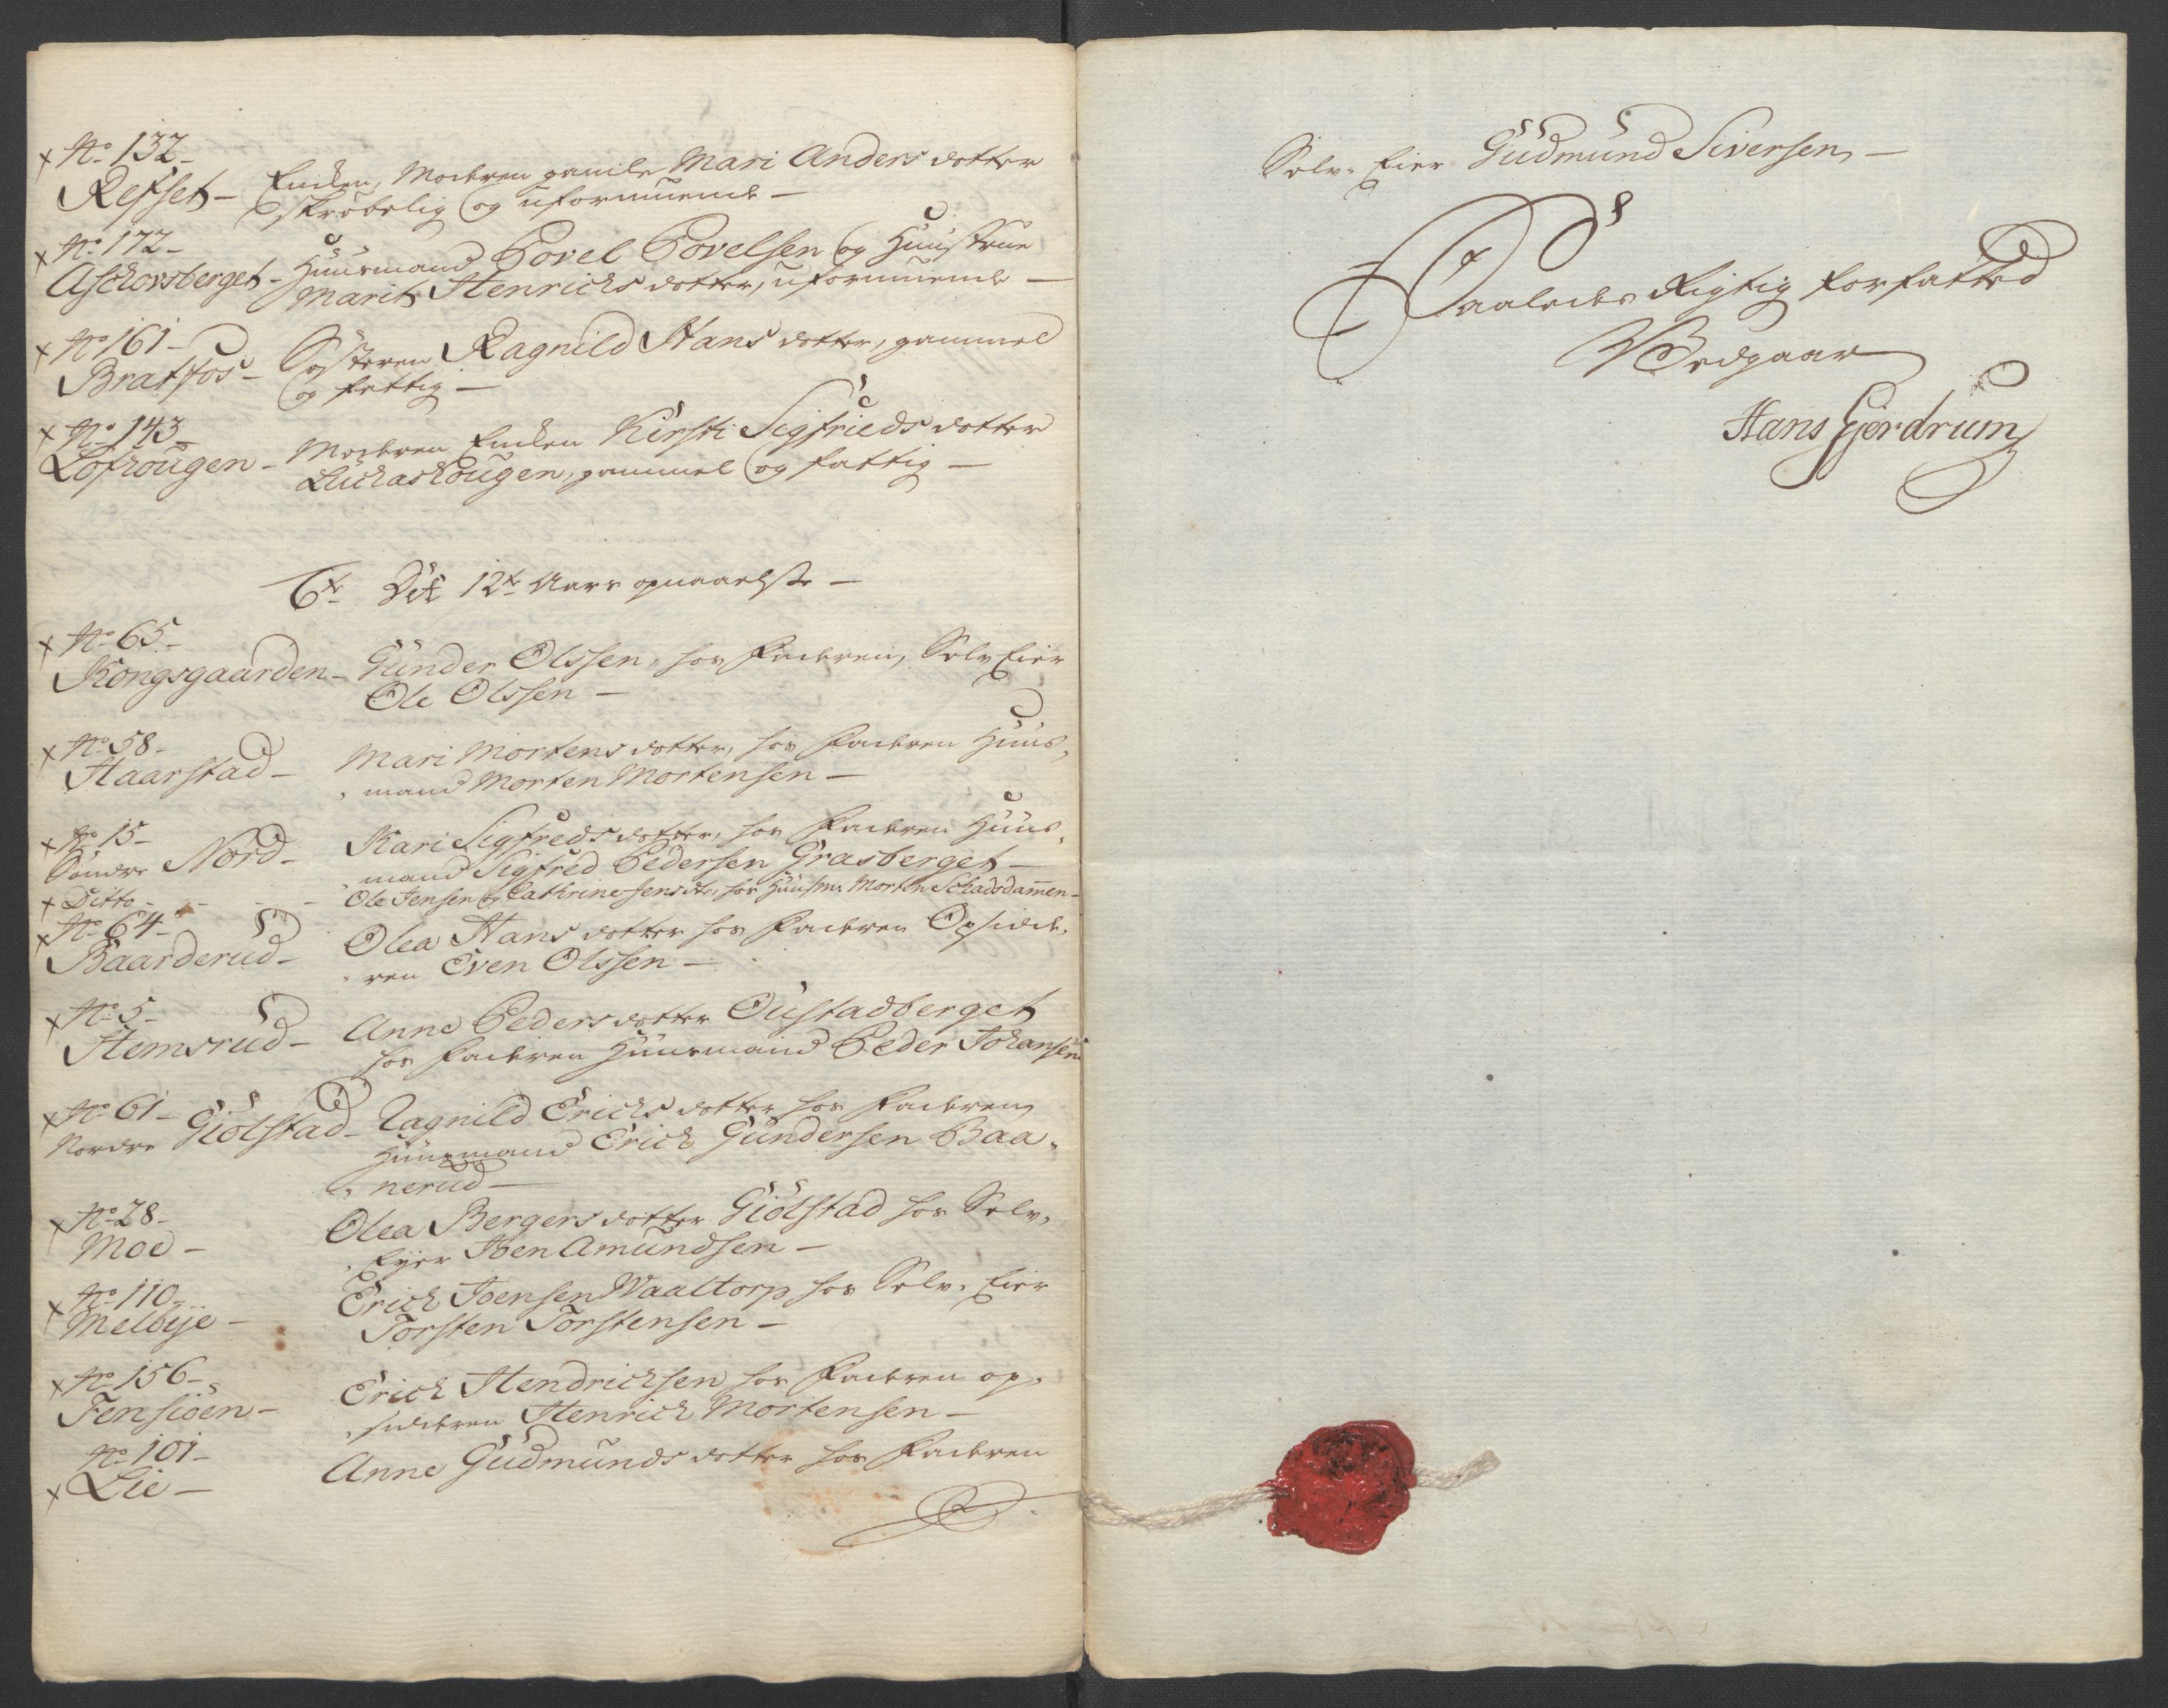 x No 132 -
Refset - Encken, Moderen gamle Mari Anders dotter
skrøbelig og uformuende -
x No 172 -
Aschorsberget - Huusmand Povel Povelsen og Huustrue
Marit Henrichs dotter, uformuende -
x No 161 -
Bratfos - Søsteren Ragnild Hans dotter, gammel
og fattig -
x No 143 -
Lofrougen - Moderen Encken Kirsti Sigfrieds dotter
gammel og fattig -
6te Det 12te Aars opnaaelse -
x No 65 -
Kongsgaarden - Gunder Olssen, hos Faderen, Selv Eier
Ole Olssen -
x No 58 -
Haarstad - Mari Mortens dotter, hos Faderen Huus-
mand Morten Mortensen -
x No 15 -
Søndre Nord - Kari Sigfreds dotter, hos Faderen Huus-
mand Sigfred Pedersen Grasberget -
x Ditto - - - - Ole Jensen og Cathrine Jensdtr, hos Huusm: Morten Schadsdammen -
x No 64 -
Baarderud - Olea Hans dotter hos Faderen Opsidde-
ren Even Olssen -
x No 5 -
Hemsrud - Anne Peders dotter Oustadberget
hos Faderen Huusmand Peder Johansen
x No 61 -
Nordre Giølstad - Ragnild Erichs dotter hos Faderen
Huusmand Erich Gundersen Baa-
nerud -
x No 28 -
Moe - Olea Bergers dotter Giølstad hos Selv-
Eyer Joen Amundsen -
x No 110 -
Melbye - Erich Joensen Waaltorp hos Selv-Eier
Torsten Torstensen -
x No 156 -
Tensiøen - Erich Hendrichsen hos Faderen op-
sidderen Henrich Mortensen -
No 101 -
x Lie - Anne Gudmunds dotter hos Faderen
Selv-Eier Gudmund Siversen -
Saaledes Rigtig forfatted
Vedgaar
Hans Gjerdrum